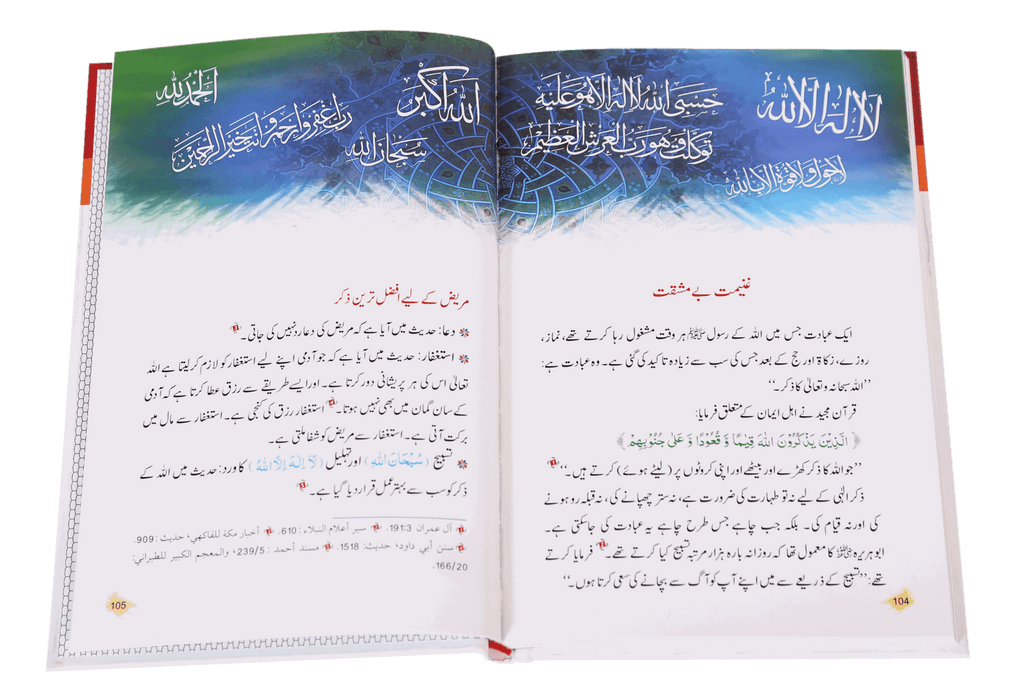 لا إله إلا الله
حسبي الله لا إله إلا هو عليه
توكلت وهو رب العرش العظيم
لا حول ولا قوة إلا بالله
غنیمت بے مشقت
ایک عبادت جس میں اللہ کے رسول ﷺ ہر وقت مشغول رہا کرتے تھے، نماز،
روزے، زکاۃ اور حج کے بعد جس کی سب سے زیادہ تاکید کی گئی ہے۔ وہ عبادت ہے:
’’اللہ سبحانہ وتعالیٰ کا ذکر۔‘‘
قرآن مجید نے اہل ایمان کے متعلق فرمایا:
﴿ الَّذِينَ يَذْكُرُونَ اللَّهَ قِيَامًا وَّ قُعُودًا وَّ عَلَىٰ جُنُوبِهِمْ ﴾
’’جو اللہ کا ذکر کھڑے اور بیٹھے اور اپنی کروٹوں پر (لیٹے ہوئے) کرتے ہیں۔‘‘
ذکر الٰہی کے لیے نہ تو طہارت کی ضرورت ہے، نہ ستر چھپانے کی، نہ قبلہ رو ہونے
کی اور نہ قیام کی۔ بلکہ جب چاہے جس طرح چاہے یہ عبادت کی جاسکتی ہے۔
ابوہریرہ کا معمول تھا کہ روزانہ بارہ ہزار مرتبہ تسبیح کیا کرتے تھے۔ فرمایا کرتے
تھے: ’’تسبیح کے ذریعے سے میں اپنے آپ کو آگ سے بچانے کی سعی کرتا ہوں۔‘‘
104
الله أكبر
الحمد لله
رب اغفر وارحم وأنت خير الراحمين
سبحان الله
مریض کے لیے افضل ترین ذکر
دعا: حدیث میں آیا ہے کہ مریض کی دعا رد نہیں کی جاتی۔
استغفار: حدیث میں آیا ہے کہ جو آدمی اپنے لیے استغفار کو لازم کرلیتا ہے اللہ
تعالیٰ اس کی ہر پریشانی دور کرتا ہے۔ اور ایسے طریقے سے رزق عطا کرتا ہے کہ آدمی
کے سان گمان میں بھی نہیں ہوتا۔ استغفار رزق کی کنجی ہے۔ استغفار سے مال میں
برکت آتی ہے۔ استغفار سے مریض کو شفا ملتی ہے۔
تسبیح (سُبْحَانَ اللّٰهِ) اور تہلیل (لَا اِلٰهَ اِلَّا اللّٰهُ) کا ورد: حدیث میں اللہ کے
ذکر کو سب سے بہتر عمل قرار دیا گیا ہے۔
آل عمران 191:3. سير أعلام النبلاء: 610. أخبار مكة للفاكهي، حديث: 909.
سنن أبي داود، حديث: 1518. مسند أحمد: 239/5، والمعجم الكبير للطبراني:
166/20.
105